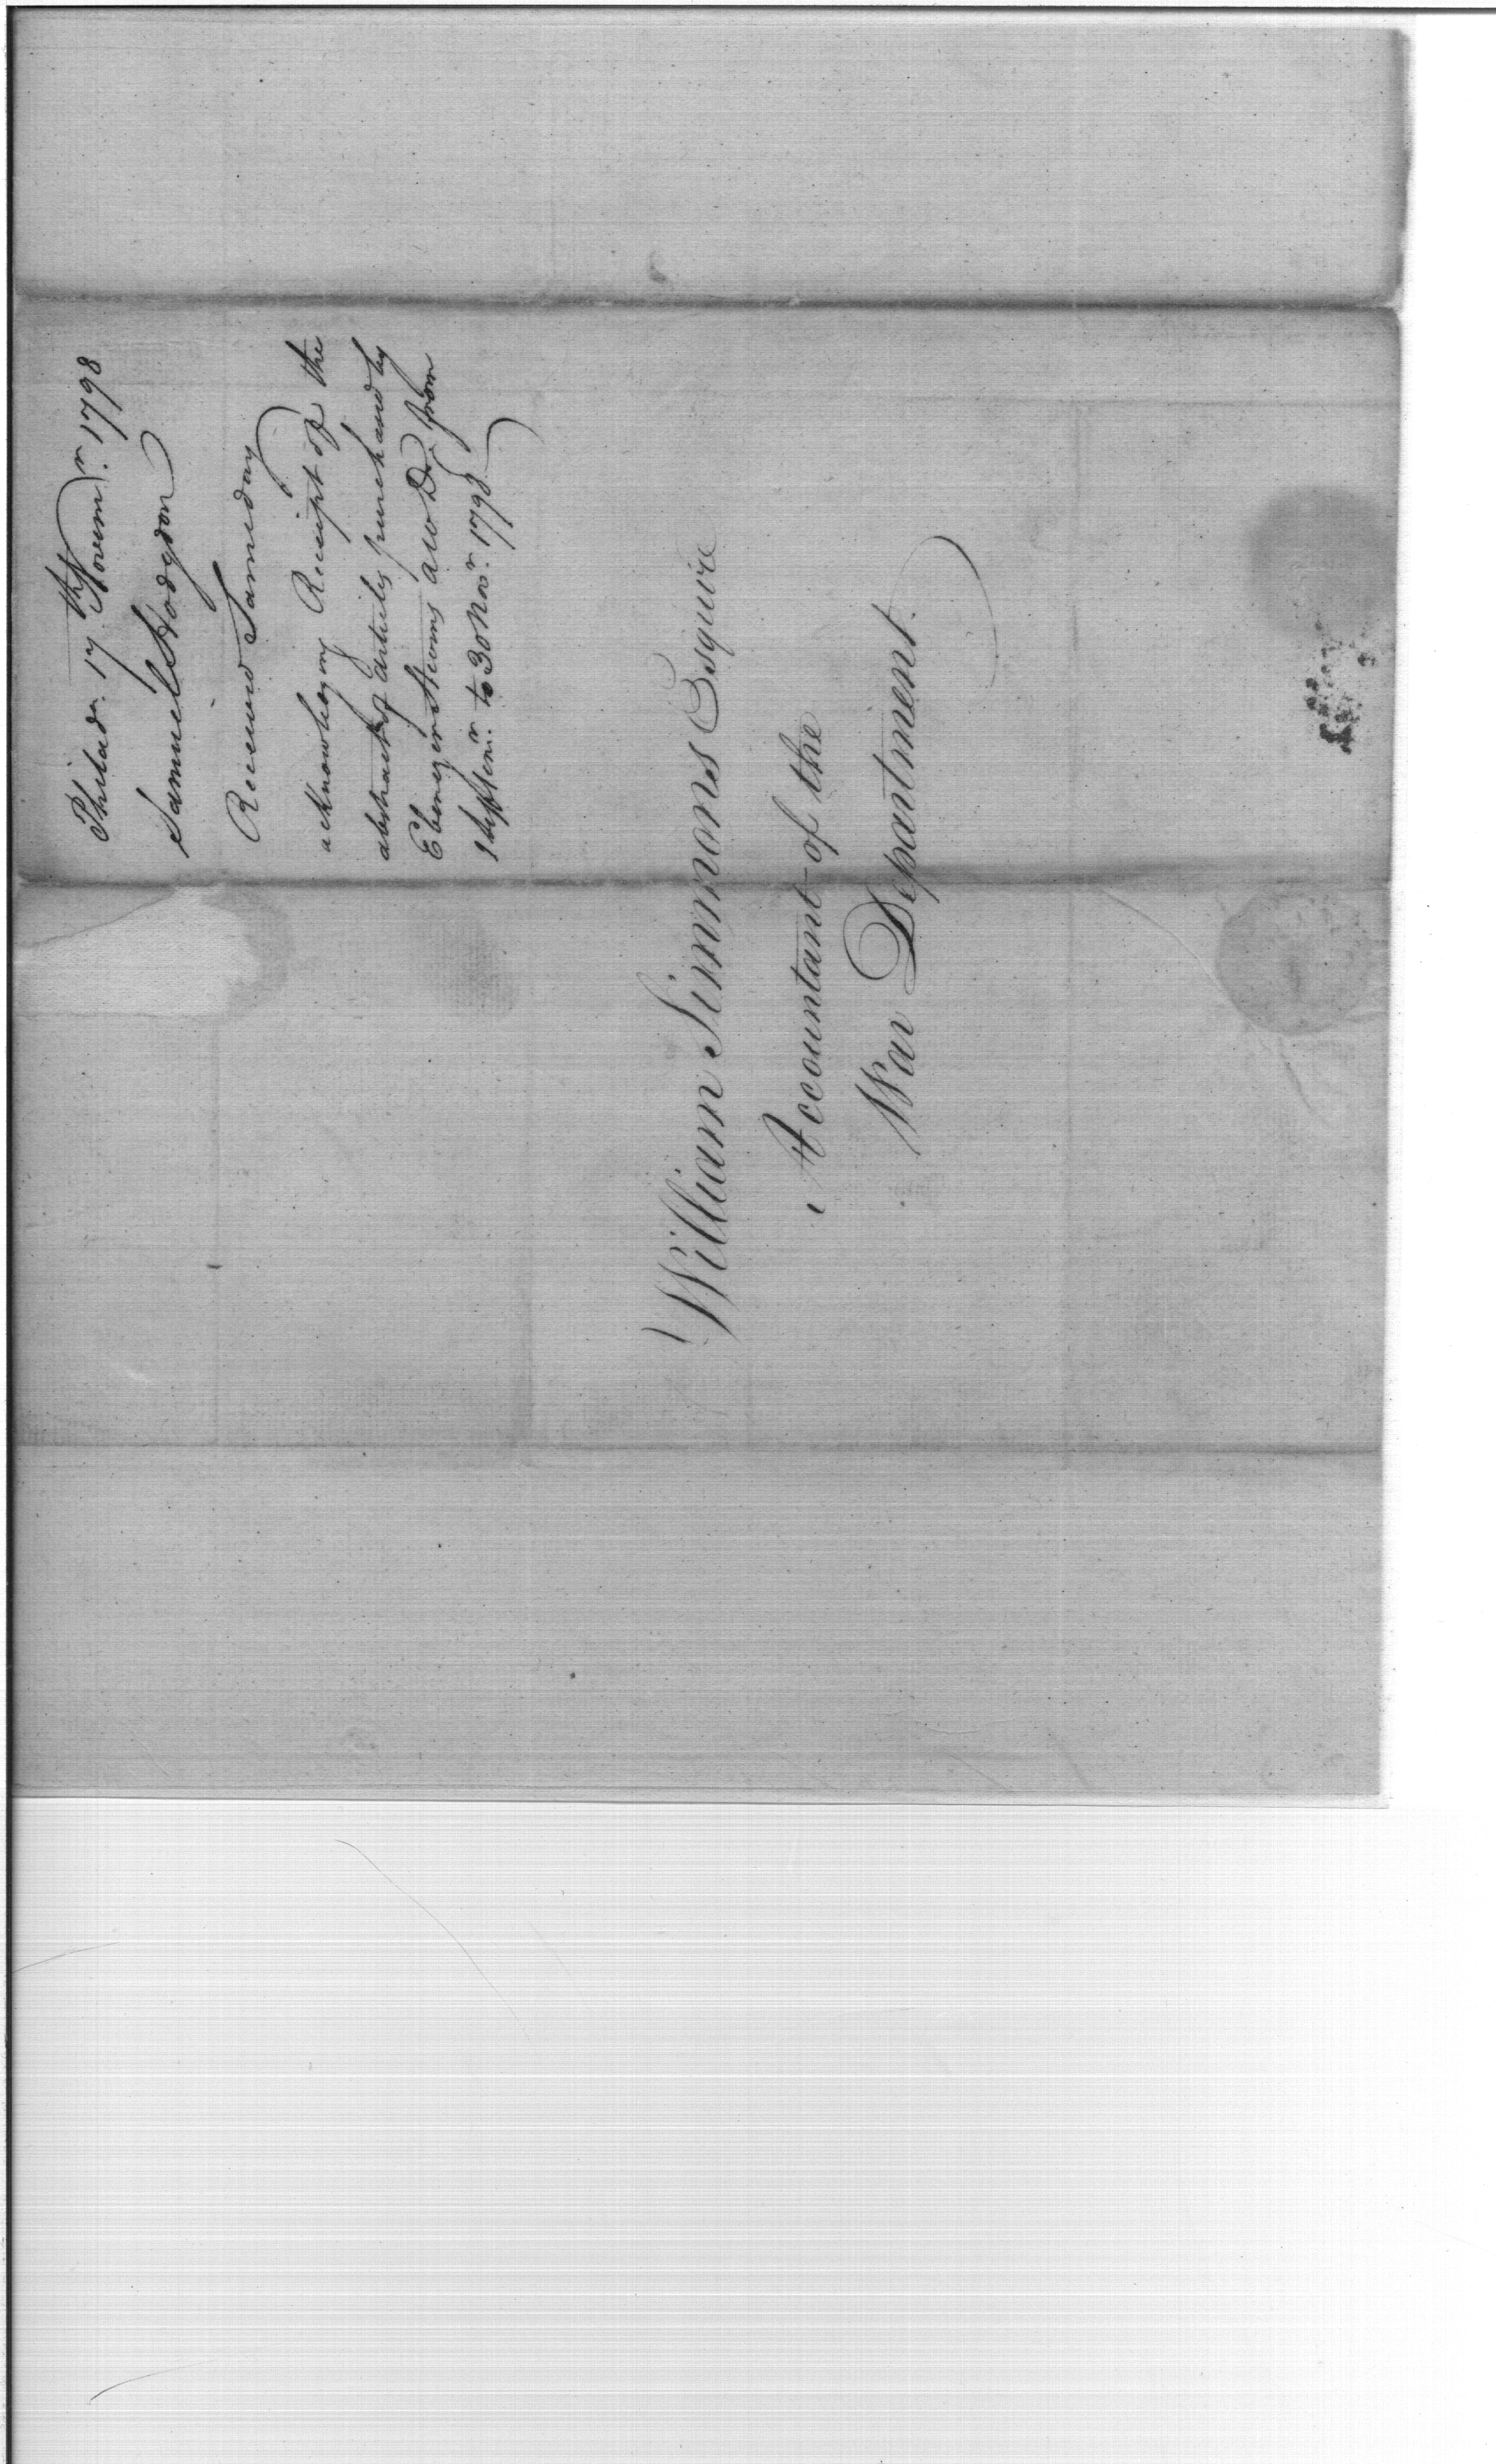 Philada. 17th Novemr. 1798
Samuel Hodgdon
Received Same day
acknowledging Receipt of the
abstract of articles purchased by
Ebenezer Stevens and from
1 Septemr. to 30 Novr. 1798
William Simmons Esquire
Accountant of the
War Department.